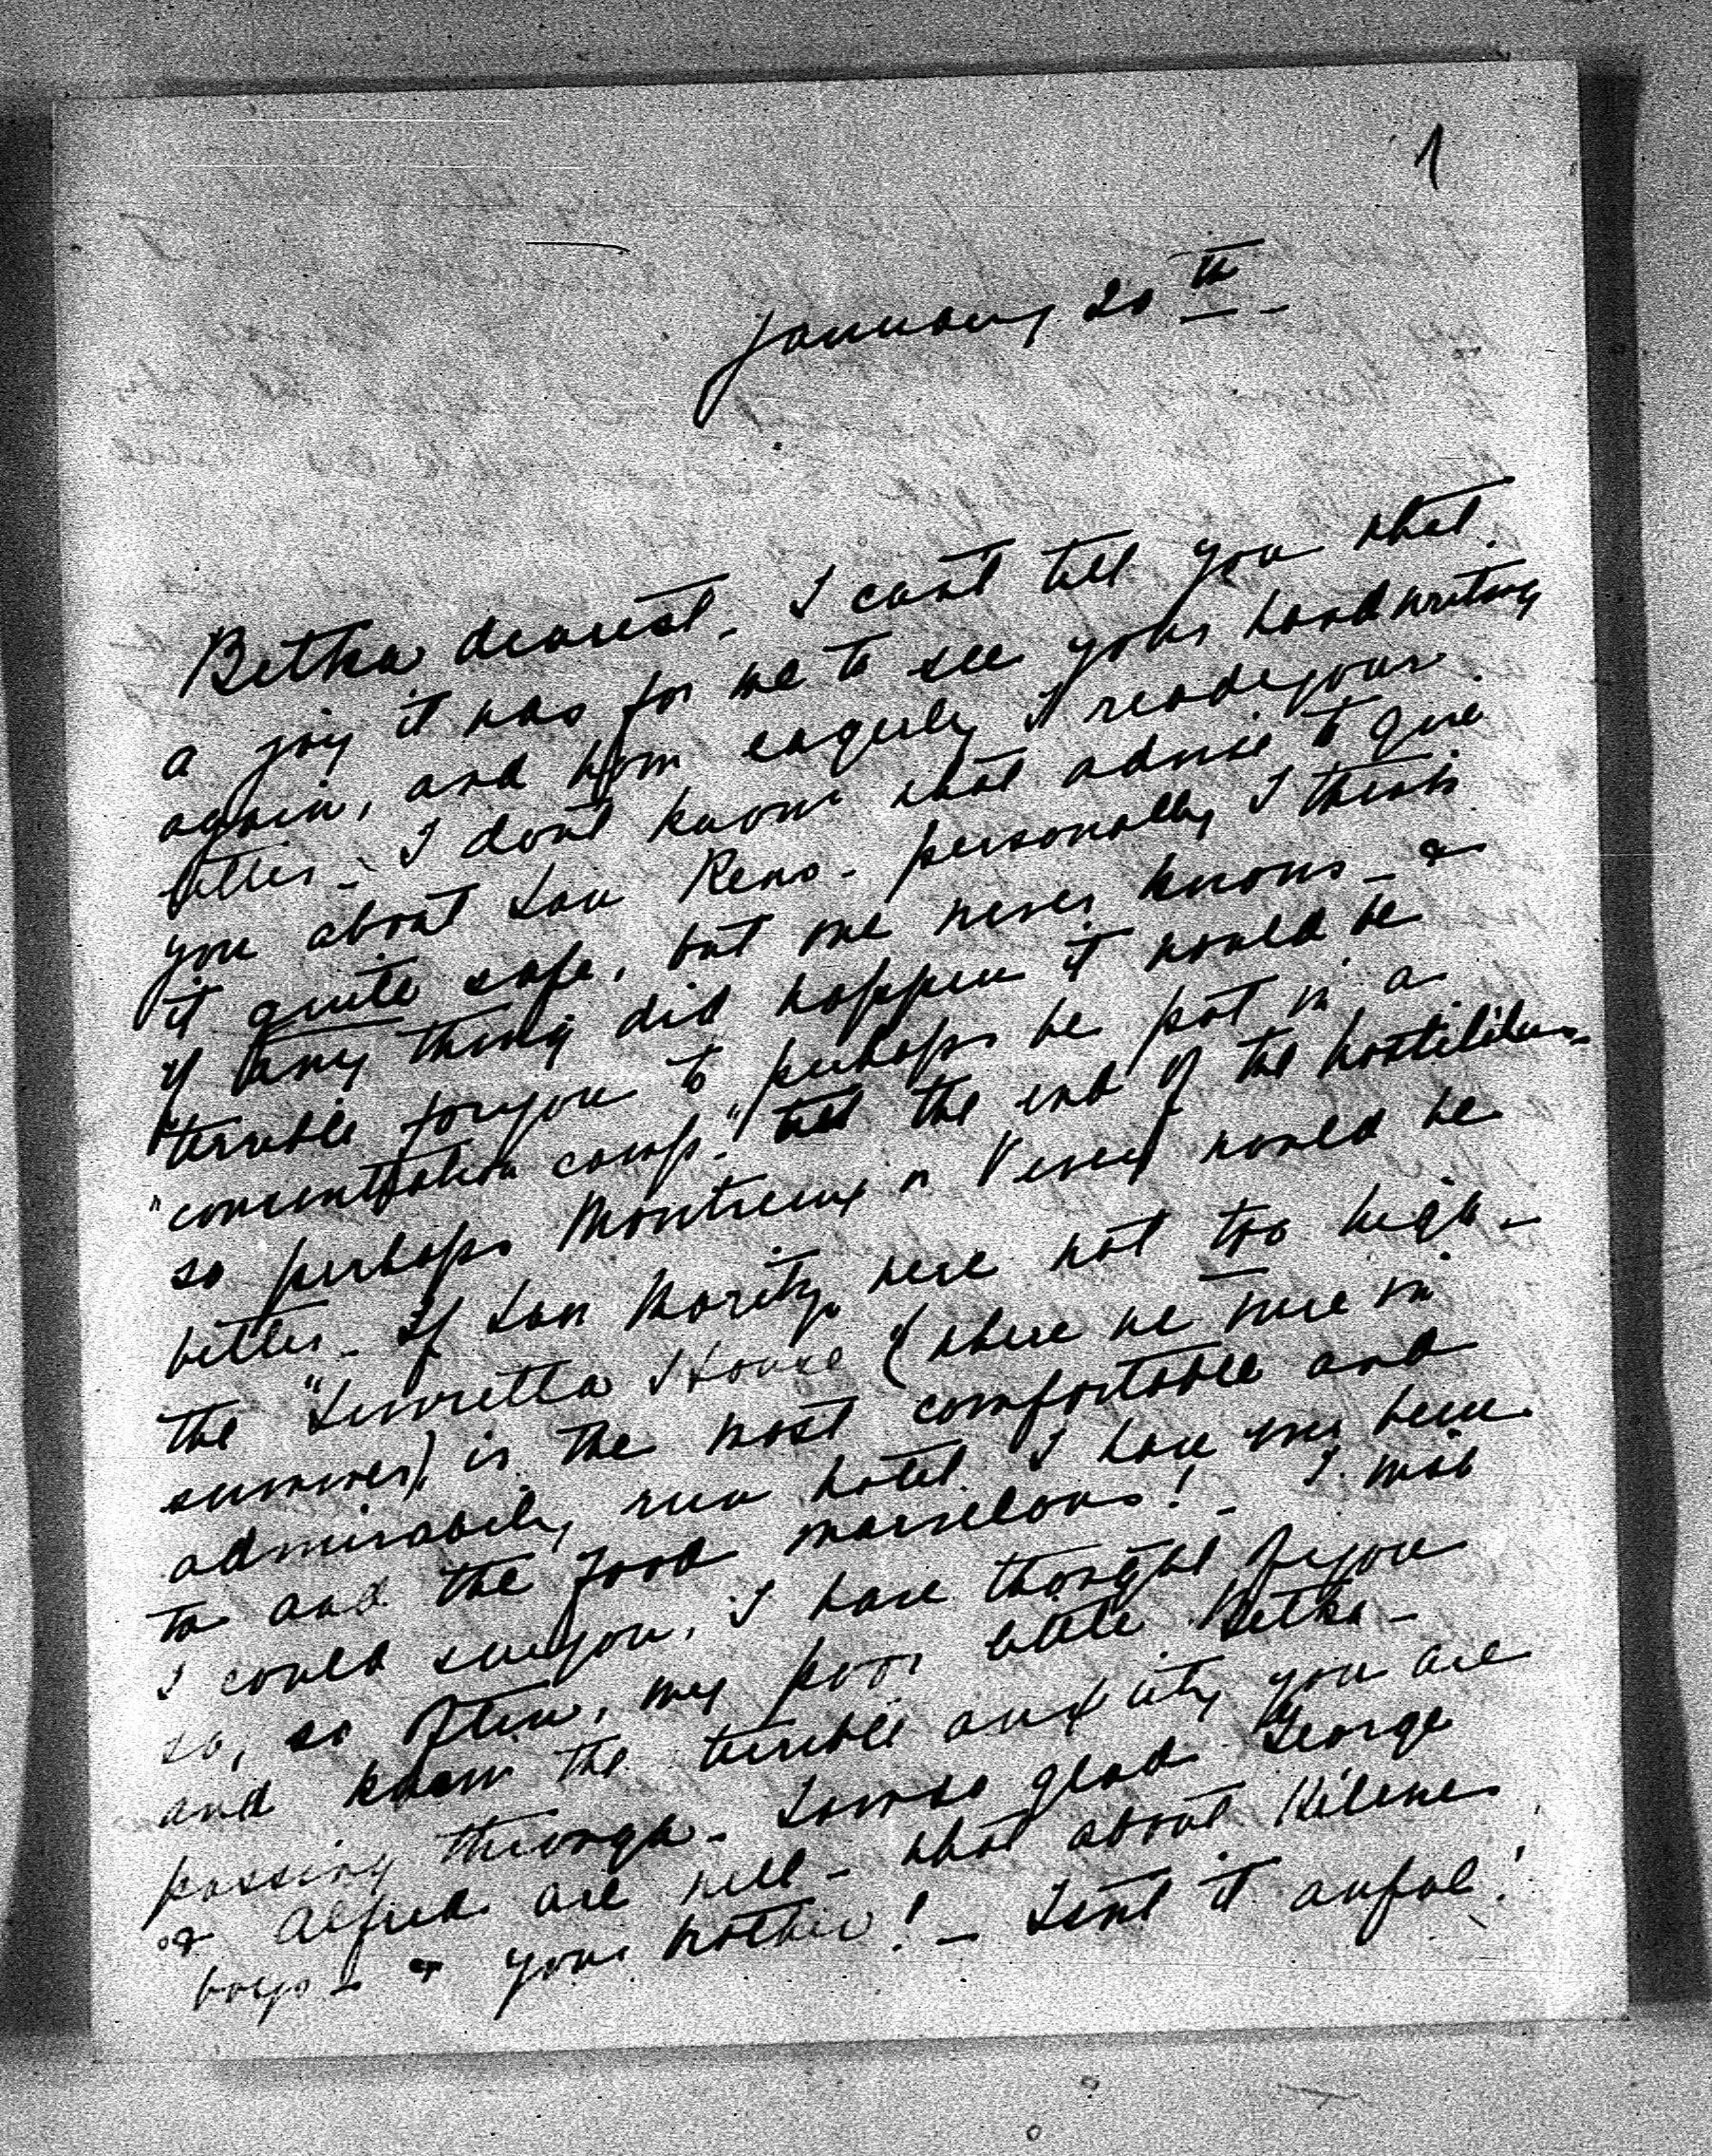 1
January 20th
Betka dearest - I cant tell you what
a joy it was for me to see your handwriting
again, and how eagerly I read your
letter - I dont know what advise to give
you about San Remo - personally I think
it quite safe, but one never knows - &
if any thing did happen it would be
terrible for you to perhaps be put in a
"concentration camp" till the end of the hostilities -
so perhaps Montreux or Vevey would be
better - If San Moritz were not too high -
the "Suvretta House" (where we were in
summer) is the most comfortable and
admirabely run hotel I have ever been
to and the food marvelous! - I wish
I could see you, I have thought of you
so, so often, my poor little Betka -
and know the terrible anxiety you are
passing through - I am so glad George
& Alfred are well - what about Hélène's
boys - & your mother! - Isent it awful!